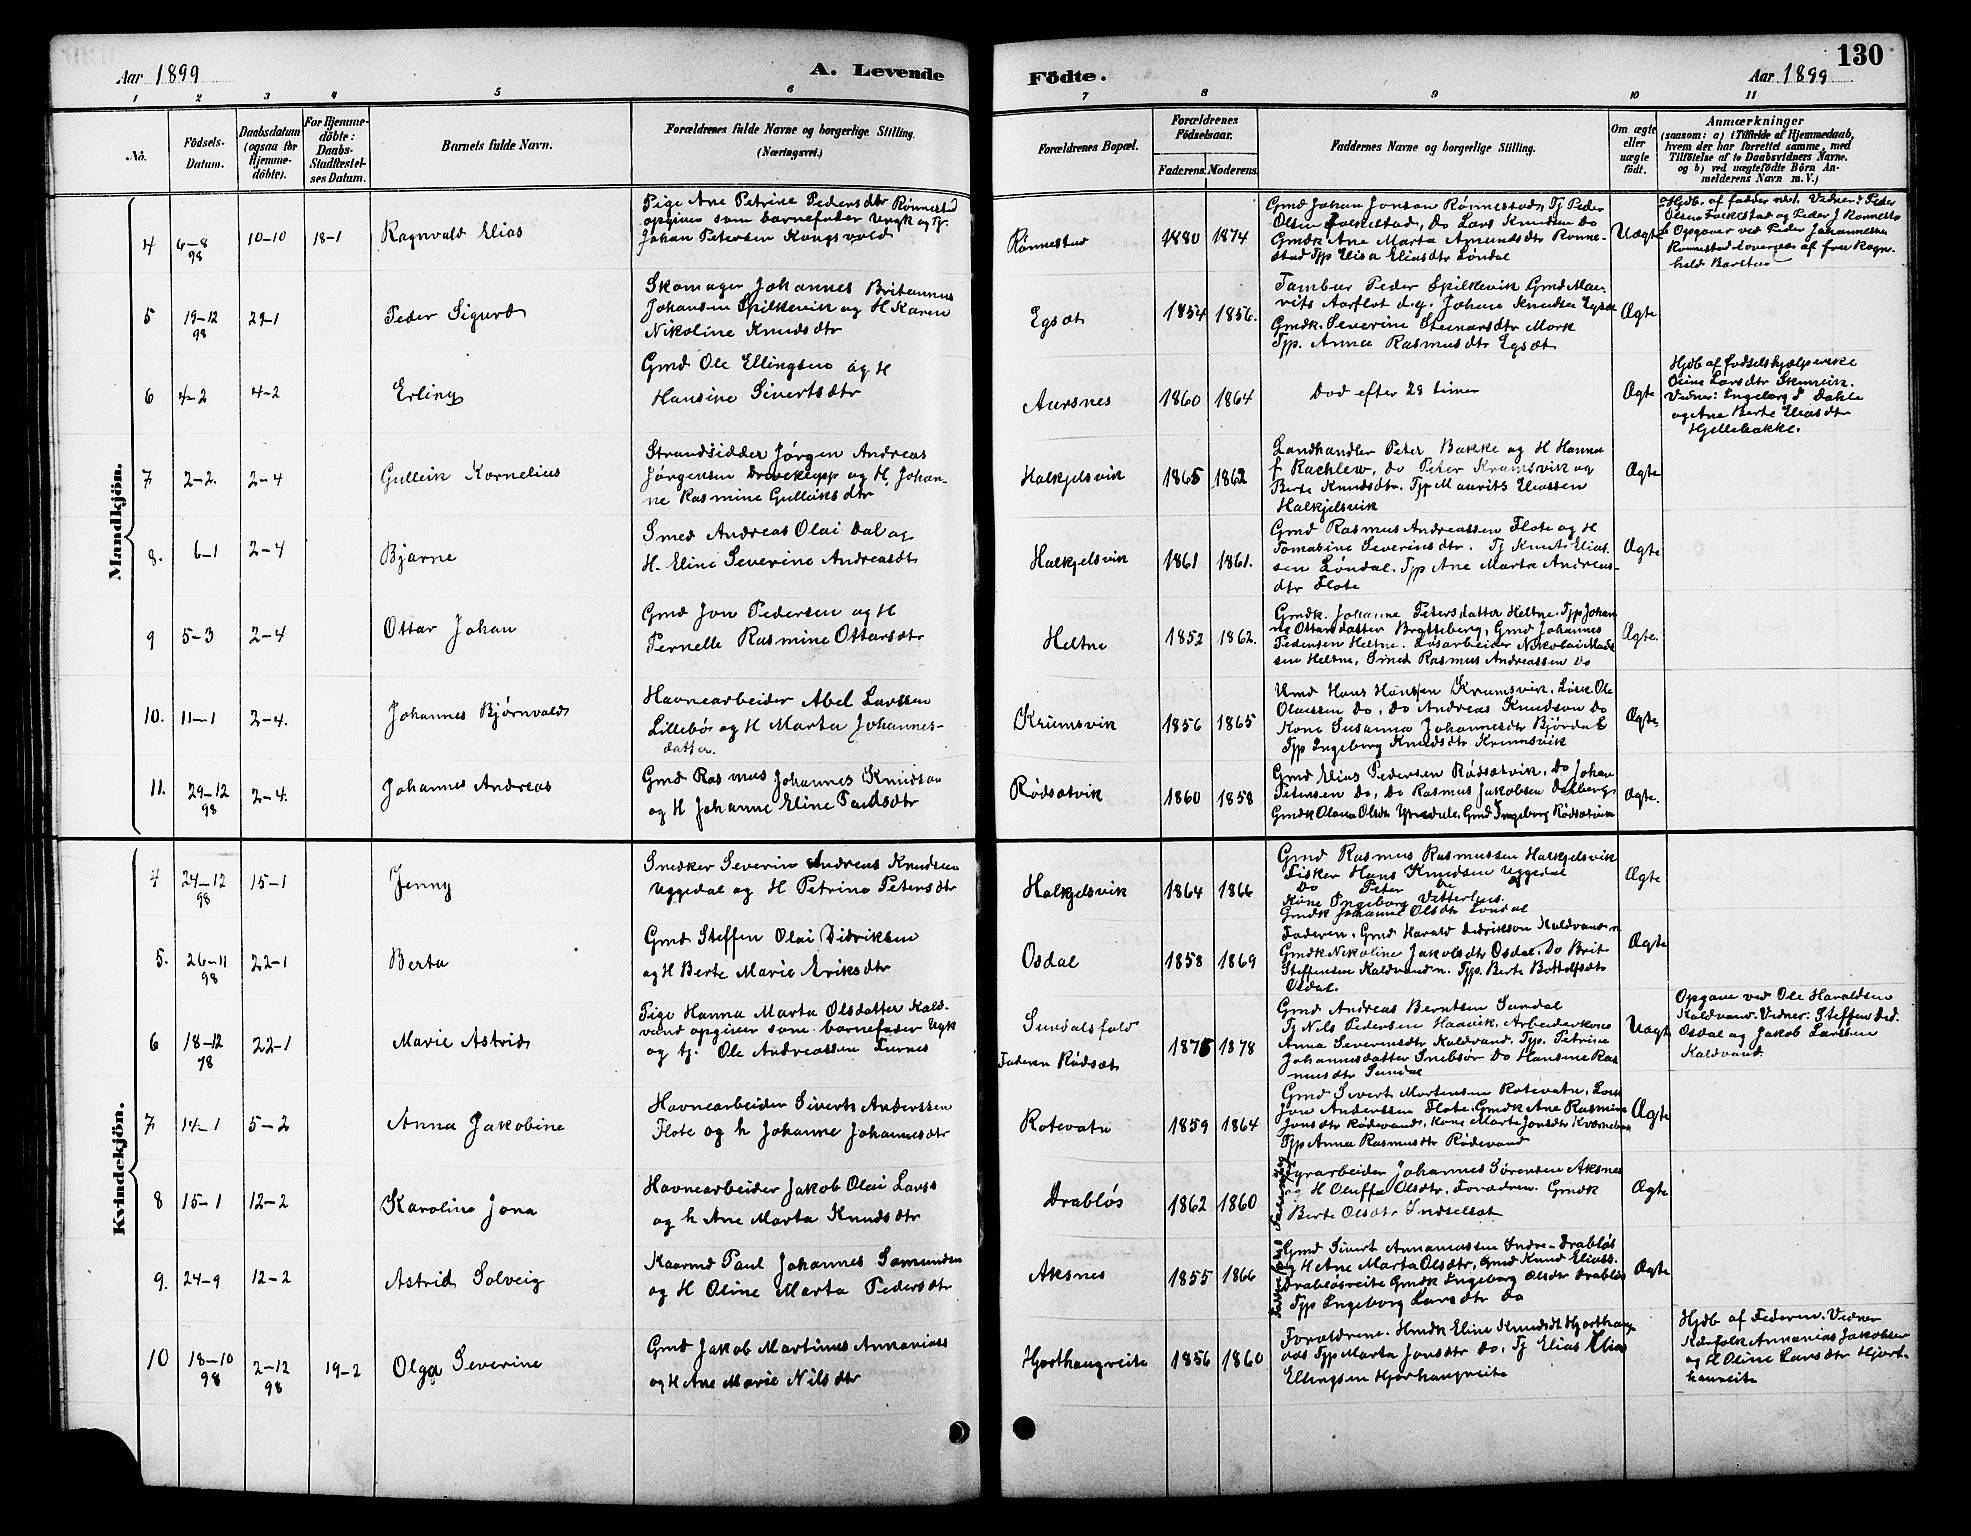 Aar 1899
A. Levende
Födte.
Aar 1899
130
1 2 3 4 5 6 7 8 9 10 11
No.
Födsels-
Datum.
Daabsdatum
(ogsaa for
Hjemme-
döbte).
For Hjemme-
döbte:
Daabs-
Stadfæstel-
ses Datum.
Barnets fulde Navn.
Forældrenes fulde Navne og borgerlige Stilling.
(Næringsvei.)
Forældrenes Bopæl.
Forældrenes
Födselsaar.
Faderens. Moderens.
Faddernes Navne og borgerlige Stilling.
Om ægte
eller
uægte
født.
Anmærkninger
(saasom: a) i Tilfælde af Hjemmedaab,
hvem der har forrettet samme, med
Tilföielse af to Daabsvidners Navne.
og b) ved uægtefödte Börn An-
melderens Navn m. V.)
Mandkjön.
4
6-8
98
10-10
18-1
Ragnvald Elias
Pige Ane Petrine Pedersdtr Rønnestad
opgives som barnefader Ungk og Tj.
Johan Petersen Kongsvold
Rønnestad
1880
1874
Gmd Johan Jonsen Rønnestad, Tj Peder
Olsen Folkestad, Do Lars Knudsen Do
Gmdk Ane Marta Amundsdtr Rønne-
stad Typ Elisa Eliasdtr Løndal
Uægte
Hjdb. af fadder no 1. Vidner: Peder
Olsen Folkestad og Peder J Rønnesta
Opgaver ved Peder Johannesen
Rønnestad
5
19-12
98
29-1
Peder Sigurd
Skomager Johannes Britannus
Johansen Spilkevik og H Karen
Nikoline Knudsdtr
Egsæt
1854
1856.
Tambur Peder Spilkevik Gmd Mau-
rits Aarflot d.y. Johan Knudsen Egsæt
Gmdk. Severine Steinarsdtr Mork
Typ. Anna Rasmusdtr Egsæt
Ægte
6
4-2
4-2
Erling
Gmd Ole Ellingsen og H
Hansine Sivertsdtr
Aursnes
1860
1864
Død efter 28 timer
Ægte
Hjdb af fødselshjælperske
Oline Larsdtr
Vidner: Ingeborg S Dahle
og Ane Berte Eliasdtr
Hjellebakke.
7
2-2.
2-4
Gulleik Kornelius
Strandsidder Jørgen Andreas
Jørgensen og H. Johan-
ne Rasmine Gulleiksdtr
Halkjelsvik
1865
1862
Landhandler Peter Bakke og H Hanna
f. Rachlew, do Peter Kramsvik og
Berte Knudsdtr. Typ Maurits Eliassen
Halkjelsvik
Ægte
8.
6-1
2-4
Bjarne
Smed Andreas Olai Dal og
H. Eline Severine Andreasdtr
Halkjelsvik
1861
1861.
Gmd Rasmus Andreassen Flote og H
Tomasine Severinsdtr. Tj Knut Elias-
sen Løndal. Typ Ane Marta Andreas-
dtr Flote
Ægte
9
5-3
2-4
Ottar Johan
Gmd Jon Pedersen og H
Pernelle Rasmine Ottarsdtr
Heltne
1852
1862.
Gmdk. Johanne Petersdatter Heltne. Typ Johan
ne Ottarsdatter Bratteberg, Gmd Johannes
Pedersen Heltne. Løsarbeider Nikolai Mad-
sen Heltne, Smed Rasmus Andreassen Do
Ægte.
10.
11-1
2-4.
Johannes Bjørnvald
Havnearbeider Abel Larssen
Lillebø og H Marta Johannes-
datter.
Krumsvik
1856
1865
Gmd Hans Hanssen Krumsvik. Løsk. Ole
Olaissen do, do Andreas Knudsen Do
Kone Susanna Johannesdtr Bjørdal
Typ Ingeborg Knudsdtr Krumsvik
Ægte
11.
29-12
98
2-4.
Johannes Andreas
Gmd Rasmus Johannes Knudsen
og H Johanne Eline Paulsdtr
Rødsætvik
1860
1858
Gmd Elias Pedersen Rødsætvik, Do Johan
Petersen Do, Do Rasmus Jakobsen
Gmdk Olava Olsdtr Yksedale, Gmd Ingeborg Rødsætvik
Ægte.
Kvindekjön.
4
24-12
98
15-1
Jenny
Snedker Severin Andreas Knudsen
Uggedal og H Petrine Petersdtr
Halkjelsvik
1864
1866
Gmd Rasmus Rasmussen Halkjelsvik
Fisker Hans Knudsen Uggedal
Do Peter Do
Kone Ingeborg Vitterhus.
Gmdk Johanne Olsdtr Løndal
Ægte
5.
26-11
98
22-1
Berta
Gmd Steffen Olai Didriksen
og H Berte Marie Eriksdtr
Osdal
1858
1869
Faderen. Gmd Harald Didrikson Kaldvand
Gmdk Nikoline Jakobsdtr Osdal. Do Brit
Steffensen Kaldvand. Typ. Berte Bottolfsdtr
Osdal.
Ægte
6
18-12
98
22-1
Marie Astrid
Pige Hanna Marta Olsdatter Kald-
vand opgiver som barnefader Ugk
og tj. Ole Andreassen Furnes
Sundalsfold
Faderen Rødsæt
1875
1878
Gmd Andreas Berntsen Sundal
Tj Nils Pedersen Haavik. Arbeiderkone
Anna Severinsdtr Kaldvand, Typ. Petrine
Johannesdatter Snebsør Do Hansine Ras-
musdtr Sundal
Uægte
Opgave ved Ole Haraldsen
Kaldvand. Vidner: Steffen Did.
Osdal og Jakob Larssen
Kaldvand.
7
14-1
5-2
Anna Jakobine
Havnearbeider Sivert Anderssen
Flote og h Johanne Johannesdtr
Rotevatn
1859
1864
Gmd Sivert Mortensen Rotevatn, Løsk
Jon Anderssen Flote. Gmdk Ane Rasmine
Jonsdtr Rødevand, Kone Marte Jonsdtr
Typ Anna Rasmusdtr Rødevand
Ægte
8
15-1
12-2
Karoline Jona
Havnearbeider Jakob Olai Larss
og h Ane Marta Knudsdtr
Drabløs
1862
1860
Johannes Sørensen Aksnes
og H Oluffa Olsdtr. Forældren. Gmdk
Berte Olsdtr Indselsæt
Ægte
9.
24-9
12-2
Astrid Solveig
Kaarmd Paul Johannes Samundsen
og H Oline Marta Pedersdtr
Aksnes
1855
1866
Gmd Sivert Annaniassen Indre-Drabløs
og H Ane Marta Olsdtr, Gmd Knud Eliass.
Drabløsreite Gmdk Ingeborg Olsdtr Drabløs
Typ Ingeborg Larsdtr Do
Ægte
10
18-10
98
2-12
98
19-2
Olga Severine
Gmd Jakob Martinus Annaniass
og H Ane Marie Nilsdtr
Hjorthaugreite
1856
1860
Forældrene. Gmdk Eline Knudsdtr Hjorthaug-
Typ Marta Jonsdtr Do, Tj Elias Elias
Ellingsen Hjorhaugreite
Hjdb af Faderen. Vidner
Kaarfolk Annanias Jakobsen
og H Oline Larsdtr Hjort-
haureite